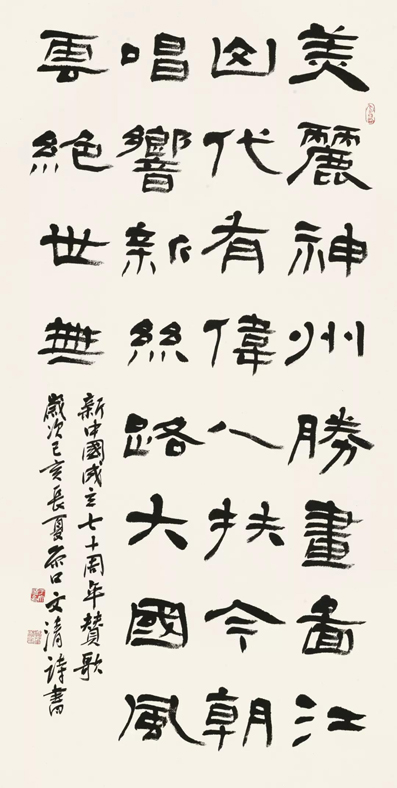 美麗神州勝畫圖江
山代有偉人扶今朝
唱響新絲路大國風
雲絕世無
新中國成立七十周年贊歌
歲次己亥長夏口文清詩書